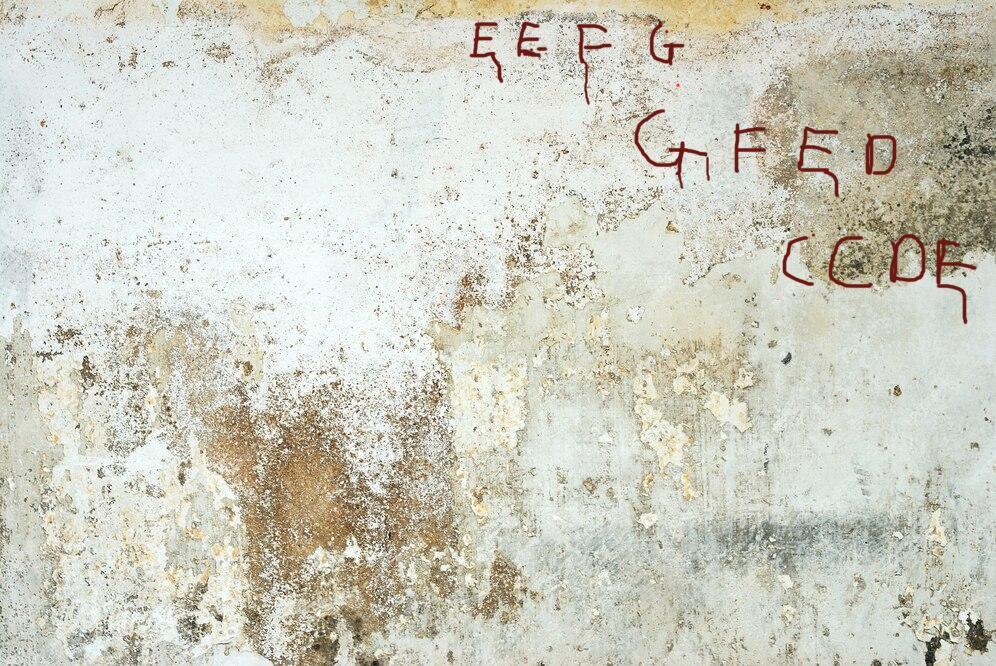 E E F G
G F E D
C C D E